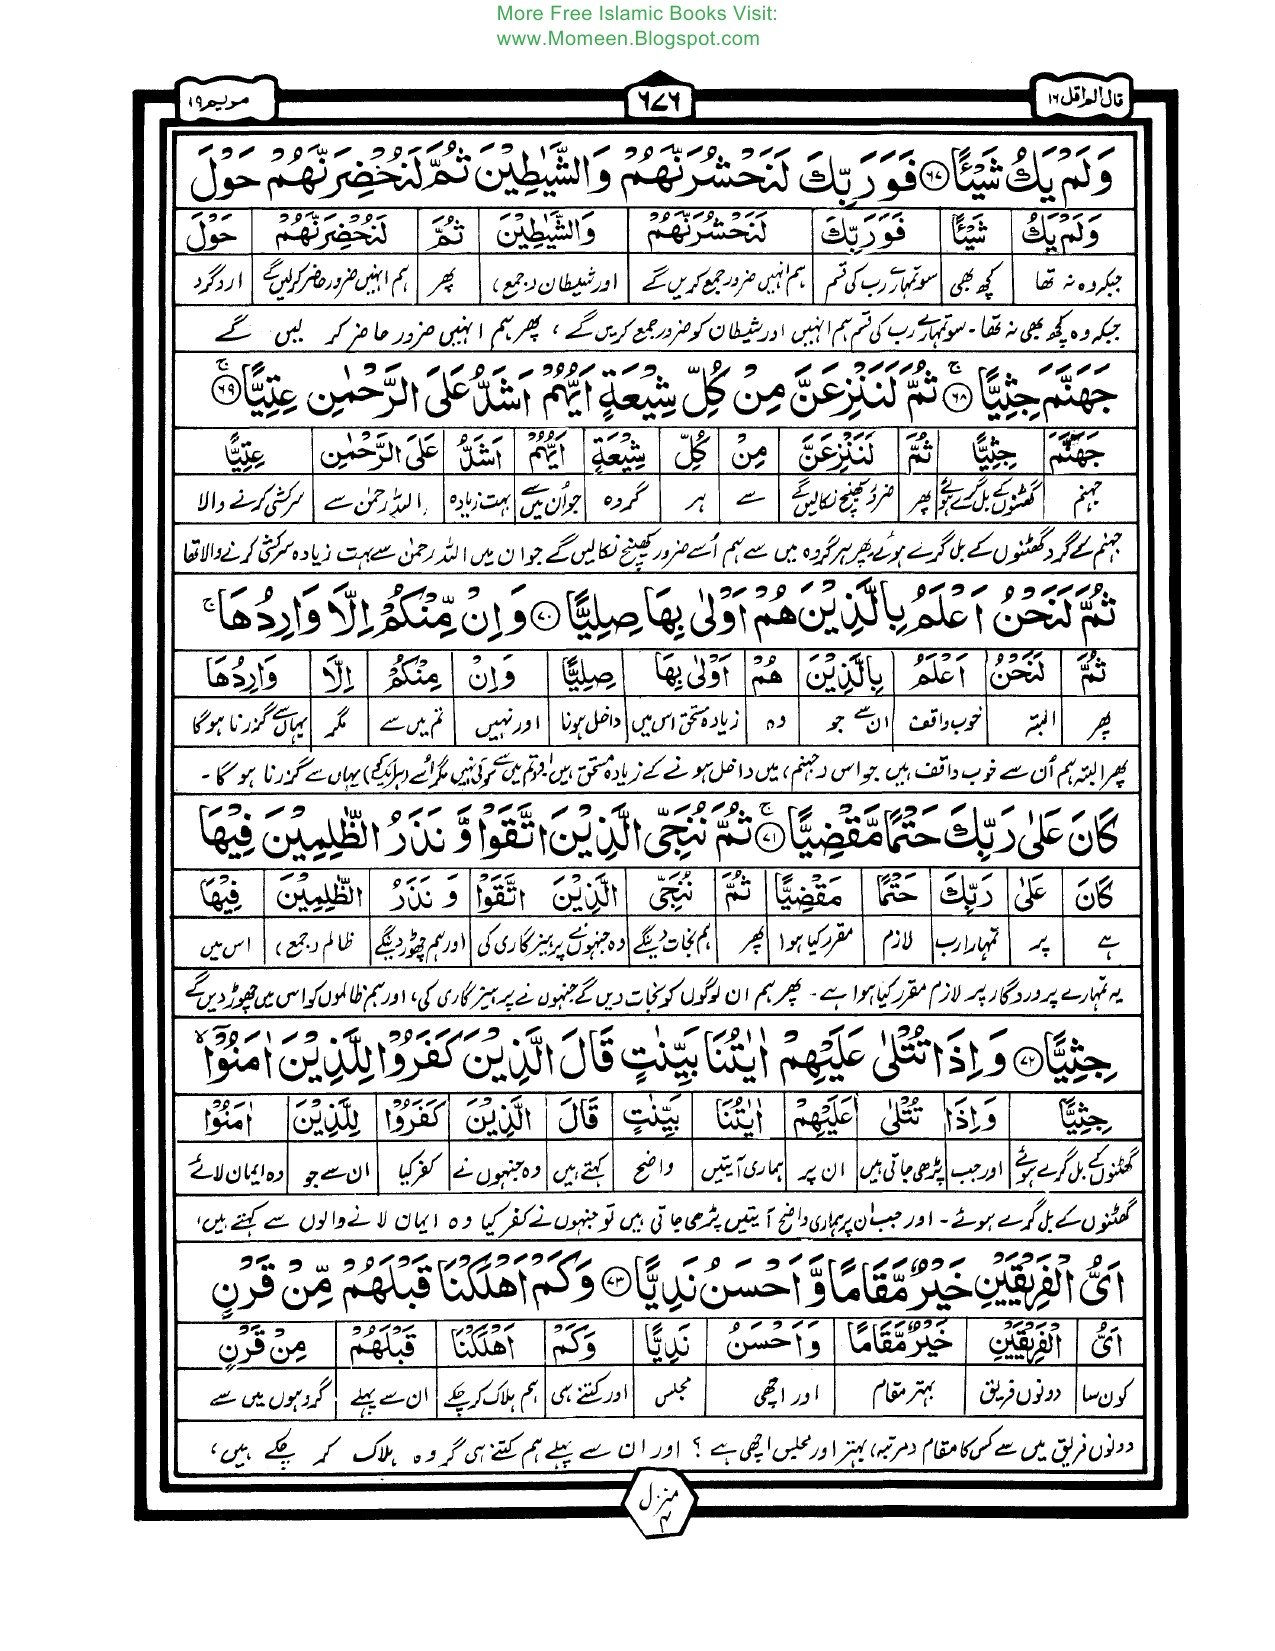 More Free Islamic Books Visit:
www.Momeen.Blogspot.com
قال الم اقل ١٦
٦٧٦
مريم ١٩
وَلَمْ يَكُ شَيْـًٔا ﴿٦٧﴾ فَوَرَبِّكَ لَنَحْشُرَنَّهُمْ وَالشَّيٰطِيْنَ ثُمَّ لَنُحْضِرَنَّهُمْ حَوْلَ
وَلَمْ يَكُ شَيْـًٔا فَوَرَبِّكَ لَنَحْشُرَنَّهُمْ وَالشَّيٰطِيْنَ ثُمَّ لَنُحْضِرَنَّهُمْ حَوْلَ
جبکہ وہ نہ تھا کچھ بھی سو تمہارے رب کی قسم ہم انہیں ضرور جمع کریں گے اور شیطان (جمع) پھر ہم انہیں ضرور حاضر کر لیں گے ارد گرد
جبکہ وہ کچھ بھی نہ تھا۔ سو تمہارے رب کی قسم ہم انہیں اور شیطان کو ضرور جمع کریں گے، پھر ہم انہیں ضرور حاضر کر لیں گے
جَهَنَّمَ جِثِيًّا ﴿٦٨﴾ۚ ثُمَّ لَنَنْزِعَنَّ مِنْ كُلِّ شِيْعَةٍ اَيُّهُمْ اَشَدُّ عَلَى الرَّحْمٰنِ عِتِيًّا ﴿٦٩﴾ۚ
جَهَنَّمَ جِثِيًّا ثُمَّ لَنَنْزِعَنَّ مِنْ كُلِّ شِيْعَةٍ اَيُّهُمْ اَشَدُّ عَلَى الرَّحْمٰنِ عِتِيًّا
جہنم گھٹنوں کے بل گرے ہوئے پھر ضرور کھینچ نکالیں گے سے ہر گروہ جو اُن میں سے بہت زیادہ اللہ رحمٰن سے سرکشی کرنے والا
جہنم کے گرد گھٹنوں کے بل گرے ہوئے پھر ہر گروہ میں سے ہم اُسے ضرور کھینچ نکالیں گے جو ان میں اللہ رحمٰن سے بہت زیادہ سرکشی کرنے والا تھا
ثُمَّ لَنَحْنُ اَعْلَمُ بِالَّذِيْنَ هُمْ اَوْلٰى بِهَا صِلِيًّا ﴿٧٠﴾ وَاِنْ مِّنْكُمْ اِلَّا وَارِدُهَا ۚ
ثُمَّ لَنَحْنُ اَعْلَمُ بِالَّذِيْنَ هُمْ اَوْلٰى بِهَا صِلِيًّا وَاِنْ مِنْكُمْ اِلَّا وَارِدُهَا
پھر البتہ خوب واقف ان سے جو وہ زیادہ مستحق اس میں داخل ہونا اور نہیں تم میں سے مگر یہاں سے گزرنا ہوگا
پھر البتہ ہم اُن سے خوب واقف ہیں جو اس (جہنم) میں داخل ہونے کے زیادہ مستحق ہیں اور تم میں سے کوئی نہیں مگر اُسے (ہر ایک کے) یہاں سے گزرنا ہوگا۔
كَانَ عَلٰى رَبِّكَ حَتْمًا مَّقْضِيًّا ﴿٧١﴾ۚ ثُمَّ نُنَجِّى الَّذِيْنَ اتَّقَوْا وَّنَذَرُ الظّٰلِمِيْنَ فِيْهَا
كَانَ عَلٰى رَبِّكَ حَتْمًا مَقْضِيًّا ثُمَّ نُنَجِّى الَّذِيْنَ اتَّقَوْا وَنَذَرُ الظّٰلِمِيْنَ فِيْهَا
ہے پر تمہارا رب لازم مقرر کیا ہوا پھر ہم نجات دینگے وہ جنہوں نے پرہیزگاری کی اور ہم چھوڑ دینگے ظالم (جمع) اس میں
یہ تمہارے پروردگار پر لازم مقرر کیا ہوا ہے۔ پھر ہم ان لوگوں کو نجات دیں گے جنہوں نے پرہیزگاری کی، اور ہم ظالموں کو اس میں چھوڑ دیں گے
جِثِيًّا ﴿٧٢﴾ وَاِذَا تُتْلٰى عَلَيْهِمْ اٰيٰتُنَا بَيِّنٰتٍ قَالَ الَّذِيْنَ كَفَرُوْا لِلَّذِيْنَ اٰمَنُوْٓا ۙ
جِثِيًّا وَاِذَا تُتْلٰى عَلَيْهِمْ اٰيٰتُنَا بَيِّنٰتٍ قَالَ الَّذِيْنَ كَفَرُوْا لِلَّذِيْنَ اٰمَنُوْا
گھٹنوں کے بل گرے ہوئے اور جب پڑھی جاتی ہیں ان پر ہماری آیتیں واضح کہتے ہیں وہ جنہوں نے کفر کیا ان سے جو وہ ایمان لائے
گھٹنوں کے بل گرے ہوئے۔ اور جب ان پر ہماری واضح آیتیں پڑھی جاتی ہیں تو جنہوں نے کفر کیا وہ ایمان لانے والوں سے کہتے ہیں،
اَىُّ الْفَرِيْقَيْنِ خَيْرٌ مَّقَامًا وَّاَحْسَنُ نَدِيًّا ﴿٧٣﴾ وَكَمْ اَهْلَكْنَا قَبْلَهُمْ مِّنْ قَرْنٍ
اَىُّ الْفَرِيْقَيْنِ خَيْرٌ مَّقَامًا وَاَحْسَنُ نَدِيًّا وَكَمْ اَهْلَكْنَا قَبْلَهُمْ مِنْ قَرْنٍ
کون سا دونوں فریق بہتر مقام اور اچھی مجلس اور کتنے ہی ہم ہلاک کر چکے ان سے پہلے گروہوں میں سے
دونوں فریق میں سے کس کا مقام (مرتبہ) بہتر اور مجلس اچھی ہے؟ اور ان سے پہلے ہم کتنے ہی گروہ ہلاک کر چکے ہیں،
منزل ٤